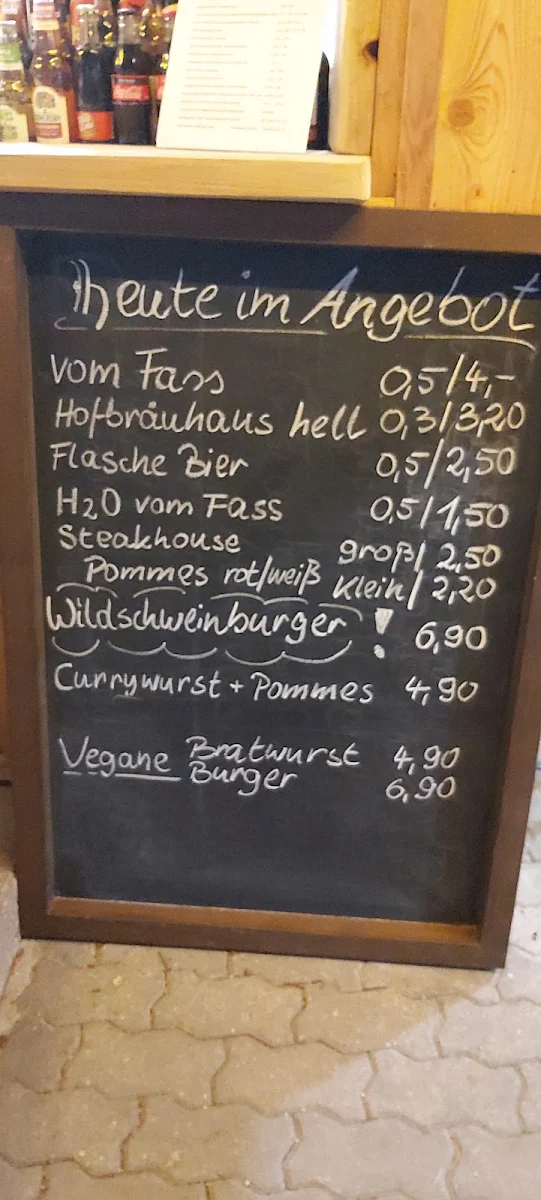 heute im Angebot
vom Fass 0,5/4,-
Hofbräuhaus hell 0,3/3,20
Flasche Bier 0,5/2,50
H2O vom Fass 0,5/1,50
Steakhouse groß/ 2,50
Pommes rot/weiß klein/ 2,20
Wildschweinburger! 6,90
Currywurst + Pommes 4,90
Vegane Bratwurst 4,90
Burger 6,90